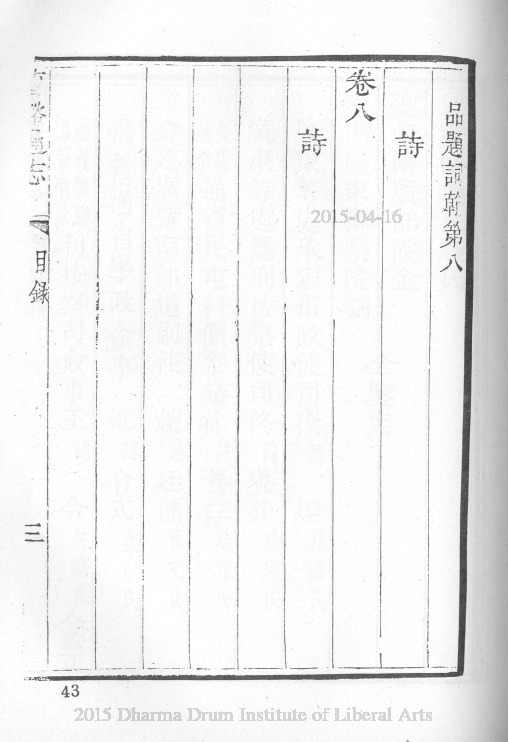 品題詞翰第八
詩
卷八
詩
目錄
三
43
2015-04-16
2015 Dharma Drum Institute of Liberal Arts